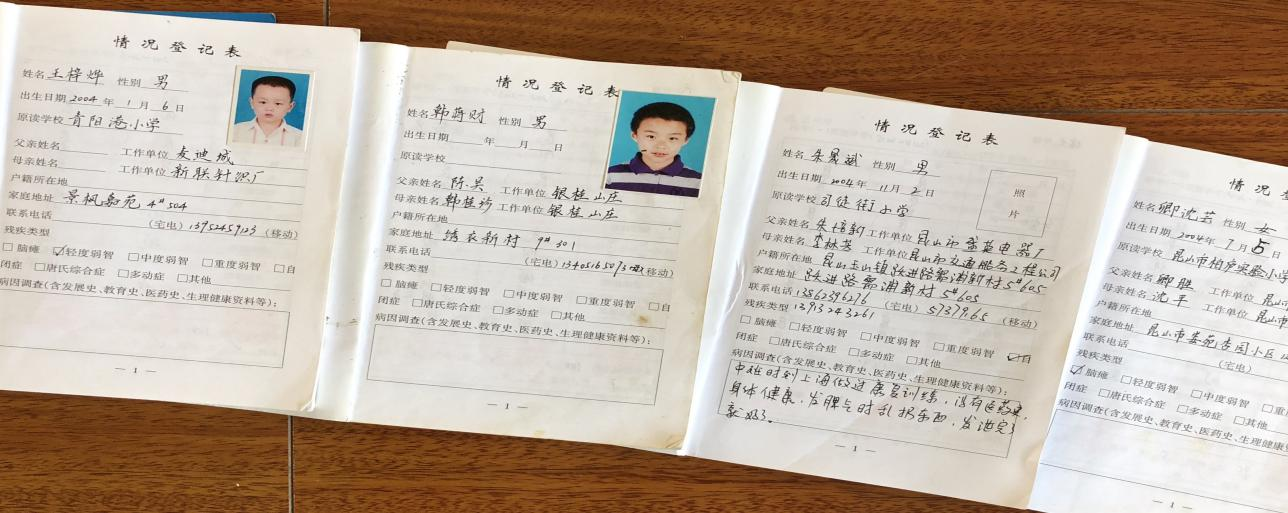 情况登记表
姓名 王梓烨 性别 男
出生日期 2004 年 1 月 6 日
原读学校 青阳港小学
父亲姓名 工作单位 友迪城
母亲姓名 工作单位 新联针织厂
户籍所在地
家庭地址 景枫嘉苑 4#504
联系电话 (宅电) 13952459123 (移动)
残疾类型
□脑瘫 ☑轻度弱智 □中度弱智 □重度弱智 □自
闭症 □唐氏综合症 □多动症 □其他
病因调查(含发展史、教育史、医药史、生理健康资料等):
— 1 —
情况登记表
姓名 韩蒋财 性别 男
出生日期 年 月 日
原读学校
父亲姓名 陈昊 工作单位 银桂山庄
母亲姓名 韩桂珍 工作单位 银桂山庄
户籍所在地
家庭地址 绣衣新村 9#301
联系电话 (宅电) (移动)
残疾类型
□脑瘫 □轻度弱智 □中度弱智 □重度弱智 □自
闭症 □唐氏综合症 □多动症 □其他
病因调查(含发展史、教育史、医药史、生理健康资料等):
— 1 —
情况登记表
姓名 朱晟斌 性别 男
照
片
出生日期 2004 年 11 月 2 日
原读学校 司徒街小学
父亲姓名 朱培新 工作单位 昆山市盛英电器厂
母亲姓名 李林芳 工作单位 昆山市交通服务工程公司
户籍所在地 昆山玉山镇跃进路郭浦新村 5#605
家庭地址 跃进路郭浦新村 5#605
联系电话 13962396276 (宅电) 5737965 (移动)
残疾类型 13913243261
□脑瘫 □轻度弱智 □中度弱智 □重度弱智 ☑自
闭症 □唐氏综合症 □多动症 □其他
病因调查(含发展史、教育史、医药史、生理健康资料等):
中班时到上海做过康复训练,没有医药史,
身体健康,发脾气时乱扔东西,发泄完了
就好了。
— 1 —
情况
姓名 卿沈芸 性别 女
出生日期 2004 年 7 月 5 日
原读学校 昆山市柏庐实验小学
父亲姓名 卿胜 工作单位 昆山
母亲姓名 沈平 工作单位 昆山市
户籍所在地
家庭地址 昆山市娄苑杏园小区
联系电话 (宅电)
残疾类型
☑脑瘫 □轻度弱智 □中度弱智 □重
闭症 □唐氏综合症 □多动症 □其他
病因调查(含发展史、教育史、医药史、生理健康
— 1 —